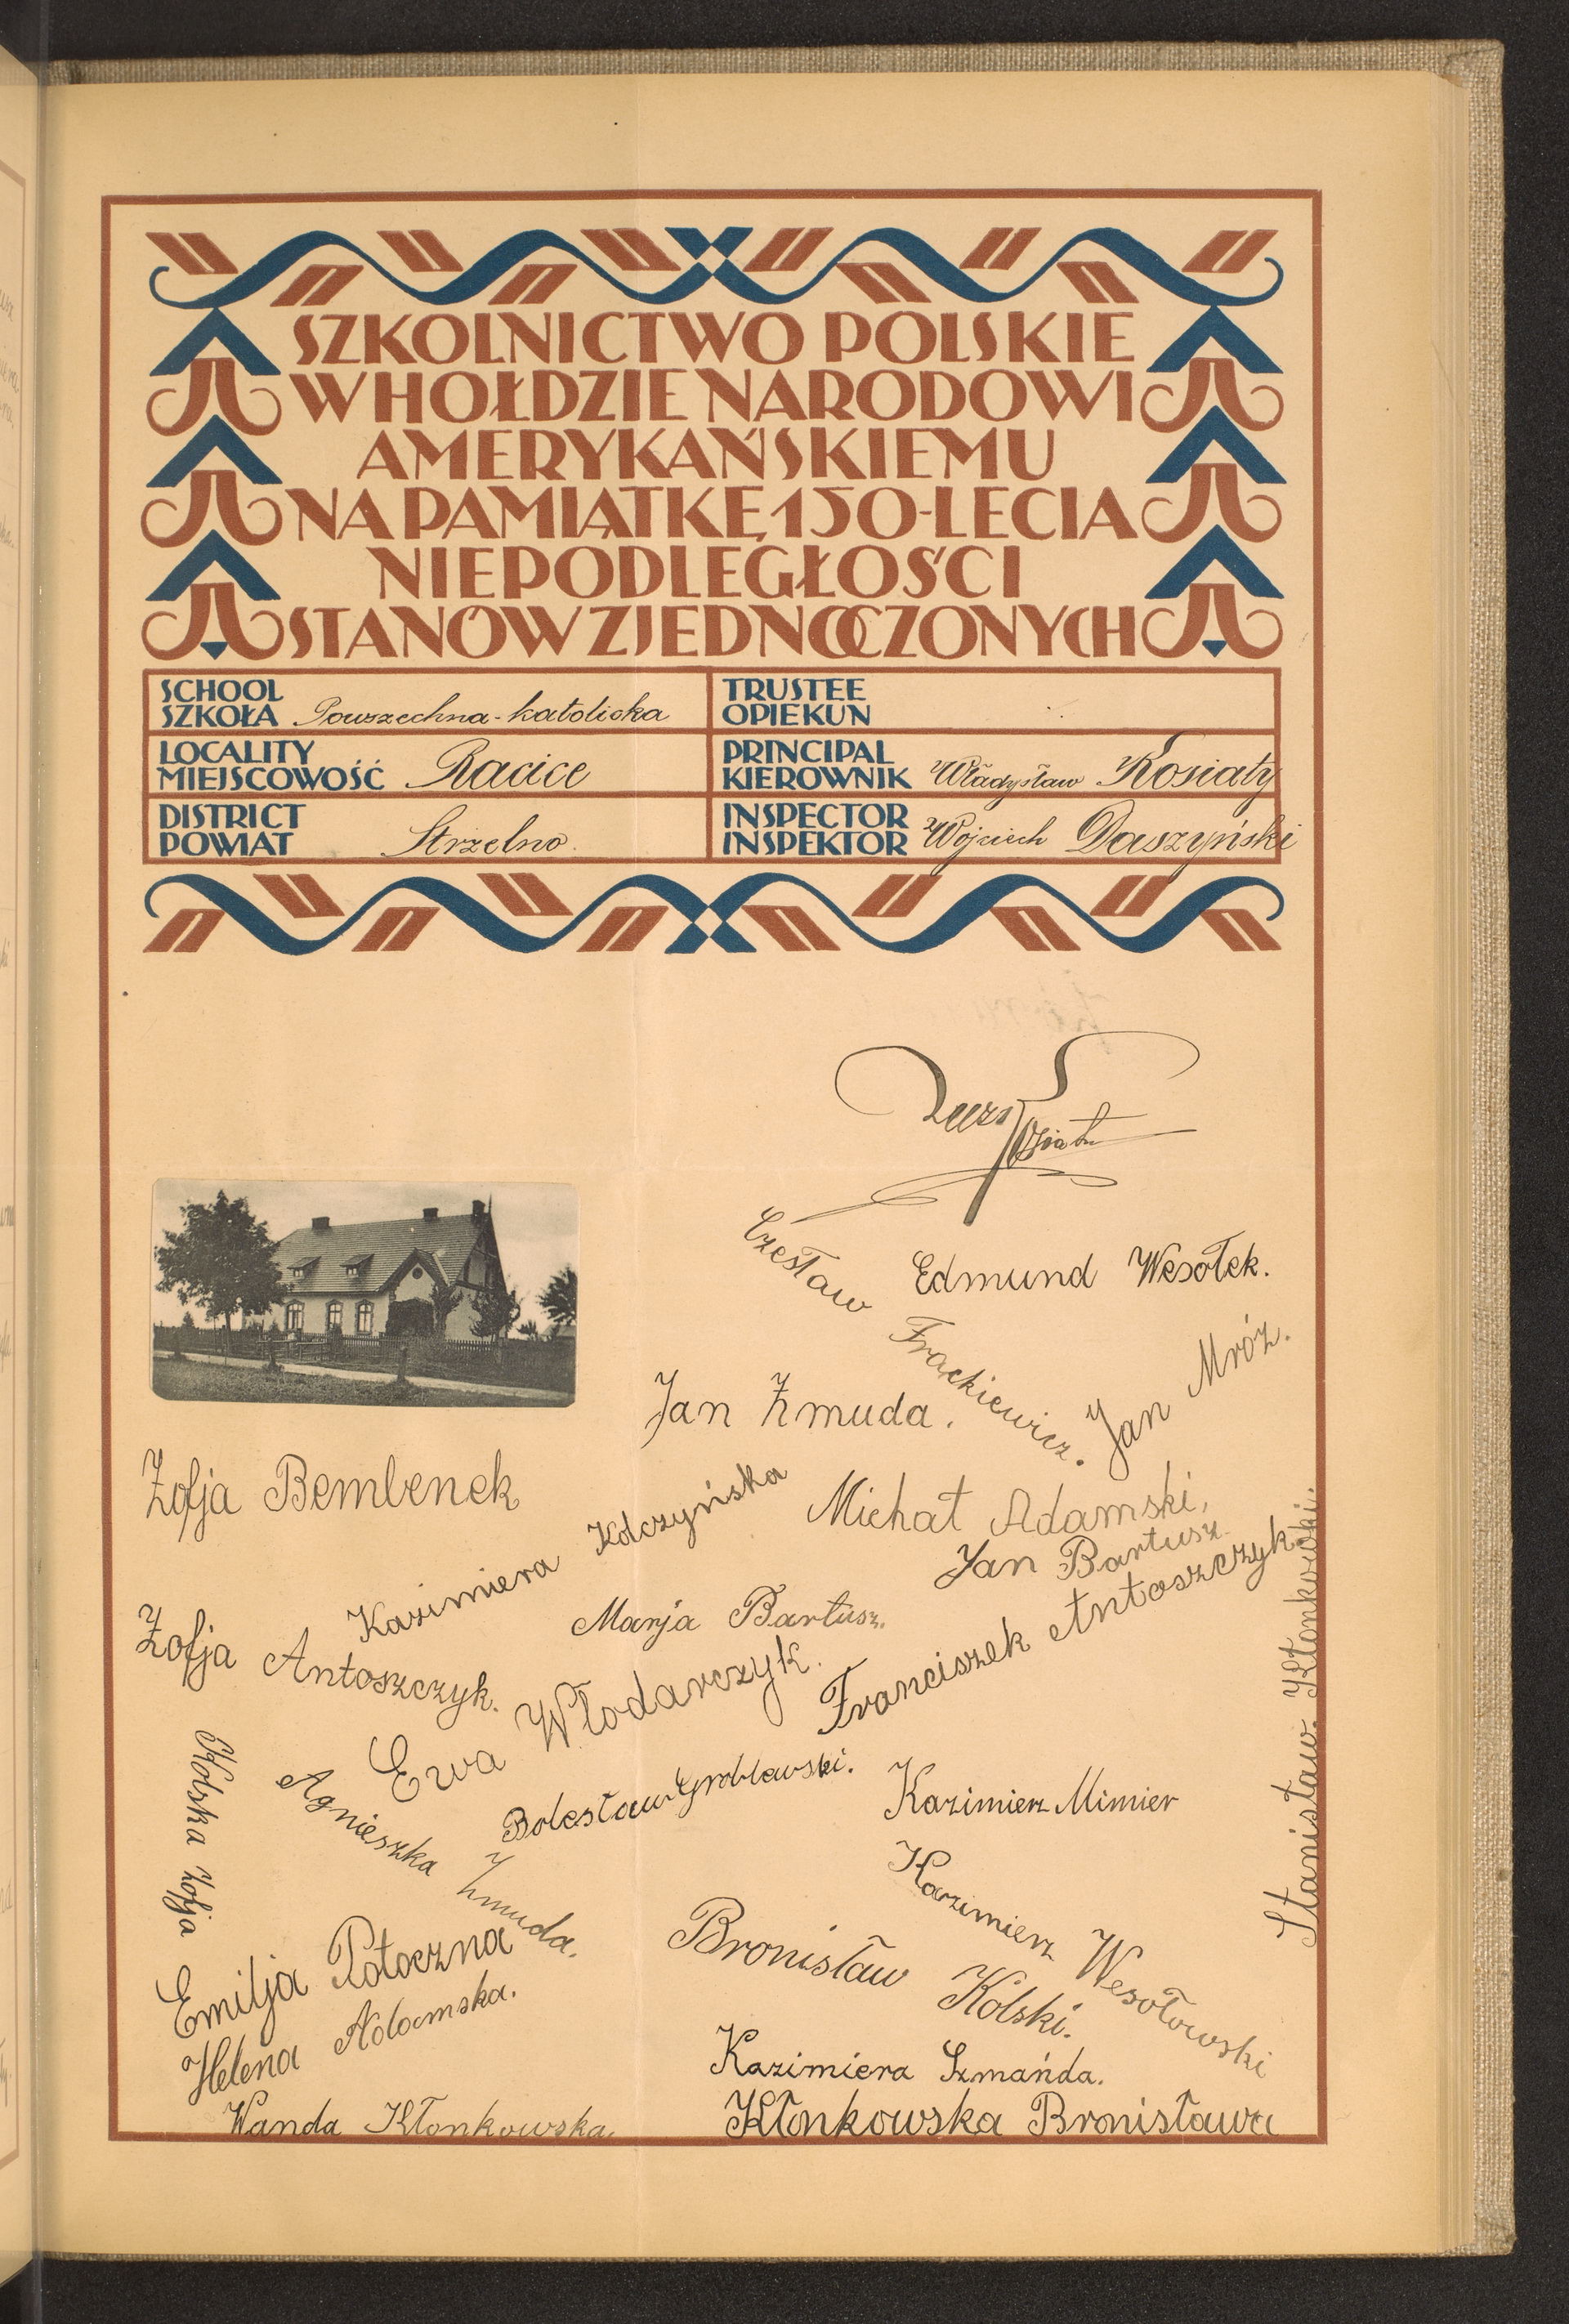 SZKOLNICTWO POLSKIE
W HOŁDZIE NARODOWI
AMERYKAŃSKIEMU
NA PAMIĄTKĘ 150-LECIA
NIEPODLEGŁOŚCI
STANÓW ZJEDNOCZONYCH
SCHOOL
SZKOŁA Powszechna-katolicka
TRUSTEE
OPIEKUN
LOCALITY
MIEJSCOWOŚĆ Racice
PRINCIPAL
KIEROWNIK Władysław Kosiaty
DISTRICT
POWIAT Strzelno.
INSPECTOR
INSPEKTOR Wojciech Daszyński
Czesław Frackiewicz.
Edmund Wesołek.
Jan Mróz.
Jan Żmuda.
Zofja Bembenek
Kazimiera Kolczyńska
Michał Adamski,
Jan Bartusz
Marja Bartusz.
Franciszek Antoszczyk.
Stanisław Kłonkowski.
Zofja Antoszczyk.
Ewa Włodarczyk.
Kolska Zofja
Agnieszka Żmuda.
Bolesław Groblewski.
Kazimierz Mimier
Kazimierz Wesołowski
Bronisław Kolski.
Emilja Potoczna
Helena Adamska.
Kazimiera Szmańda.
Wanda Kłonkowska
Kłonkowska Bronisława